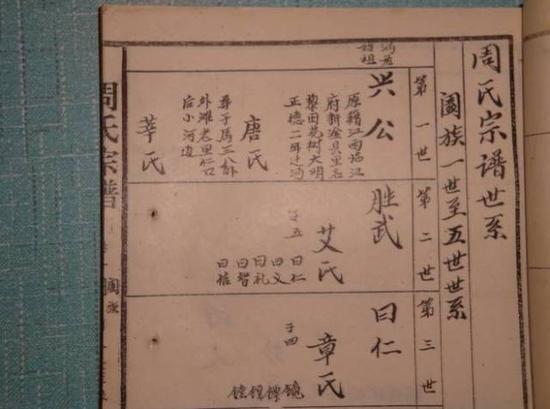 周氏宗谱世系
阖族一世至五世世系
第一世
始祖
兴公
原籍江西临江
府新淦县里名
黎田花树大明
正德二年迁沔
唐氏
外滩老里仁口
后小河边
莘氏
第二世
胜武
子五
艾氏
曰仁
曰义
曰礼
曰智
曰信
第三世
曰仁
子四
章氏
周氏宗谱